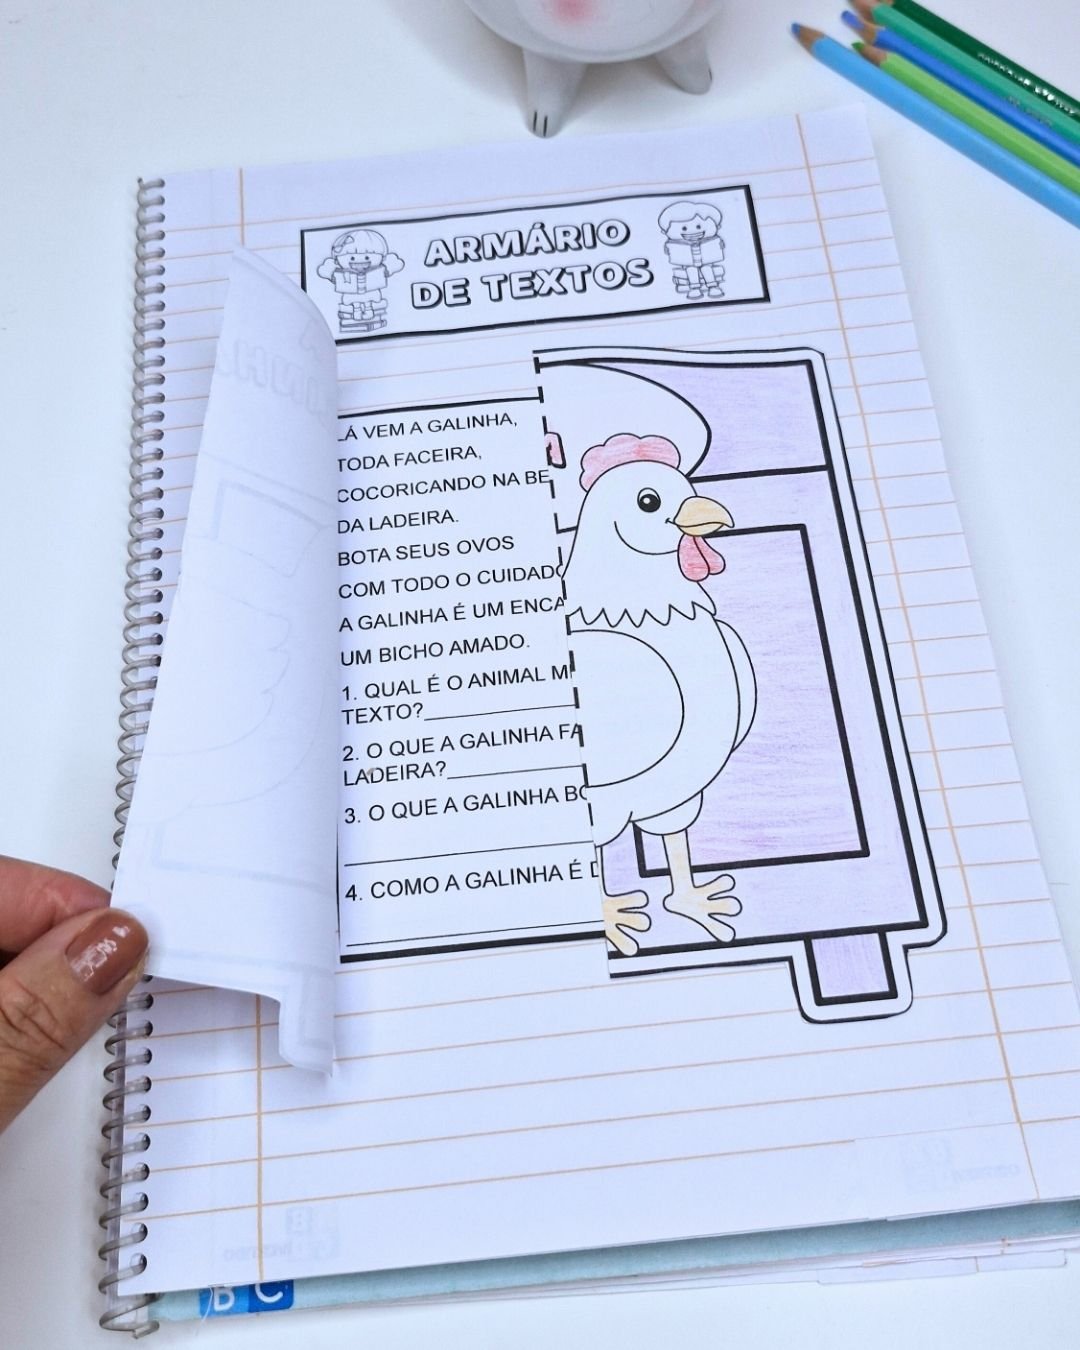 ARMÁRIO
DE TEXTOS
LÁ VEM A GALINHA,
TODA FACEIRA,
COCORICANDO NA BE
DA LADEIRA.
BOTA SEUS OVOS
COM TODO O CUIDADO
A GALINHA É UM ENCA
UM BICHO AMADO.
1. QUAL É O ANIMAL M
TEXTO?
2. O QUE A GALINHA FA
LADEIRA?
3. O QUE A GALINHA BO
4. COMO A GALINHA É D
B C